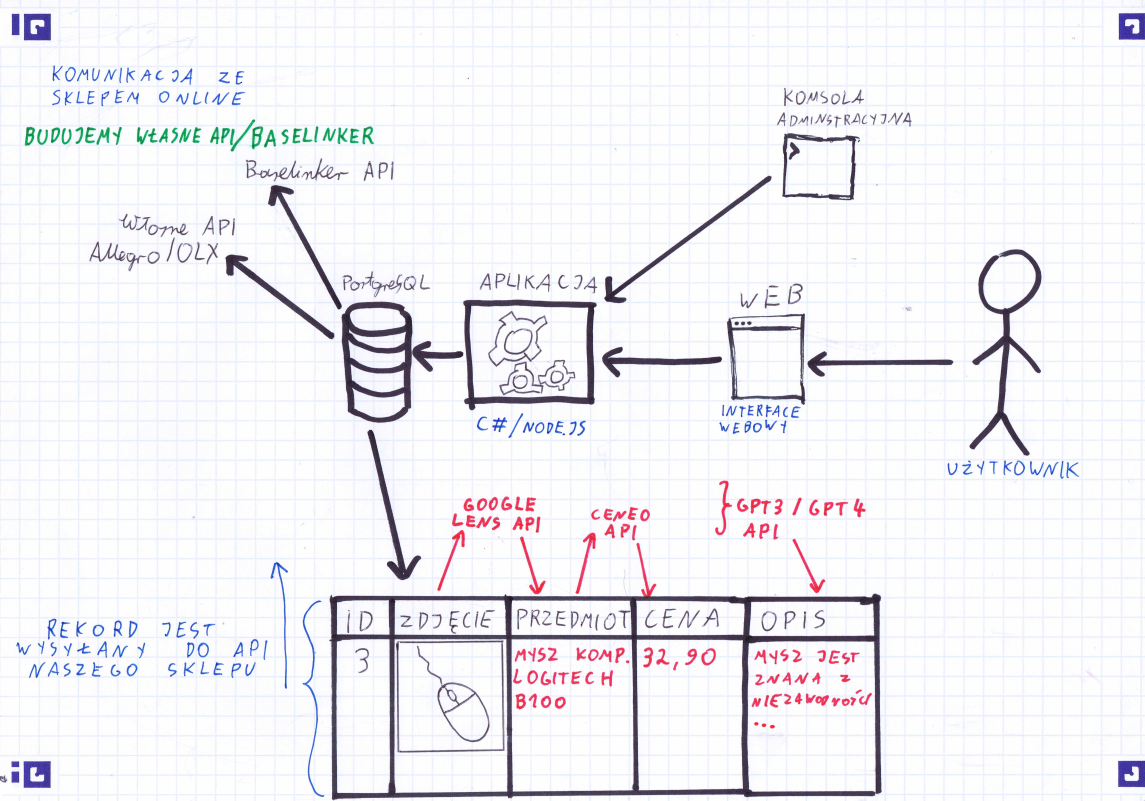 KOMUNIKACJA ZE
SKLEPEM ONLINE
BUDUJEMY WŁASNE API/BASELINKER
Baselinker API
Własne API
Allegro/OLX
PostgreSQL
APLIKACJA
C#/NODE.JS
KOMSOLA
ADMINSTRACYJNA
WEB
INTERFACE
WEBOWY
UŻYTKOWNIK
GOOGLE
LENS API
CENEO
API
GPT3 / GPT4
API
REKORD JEST
WYSYŁANY DO API
NASZEGO SKLEPU
ID ZDJĘCIE PRZEDMIOT CENA OPIS
3
MYSZ KOMP.
LOGITECH
B100
32,90
MYSZ JEST
ZNANA Z
NIEZAWODNOŚCI
...